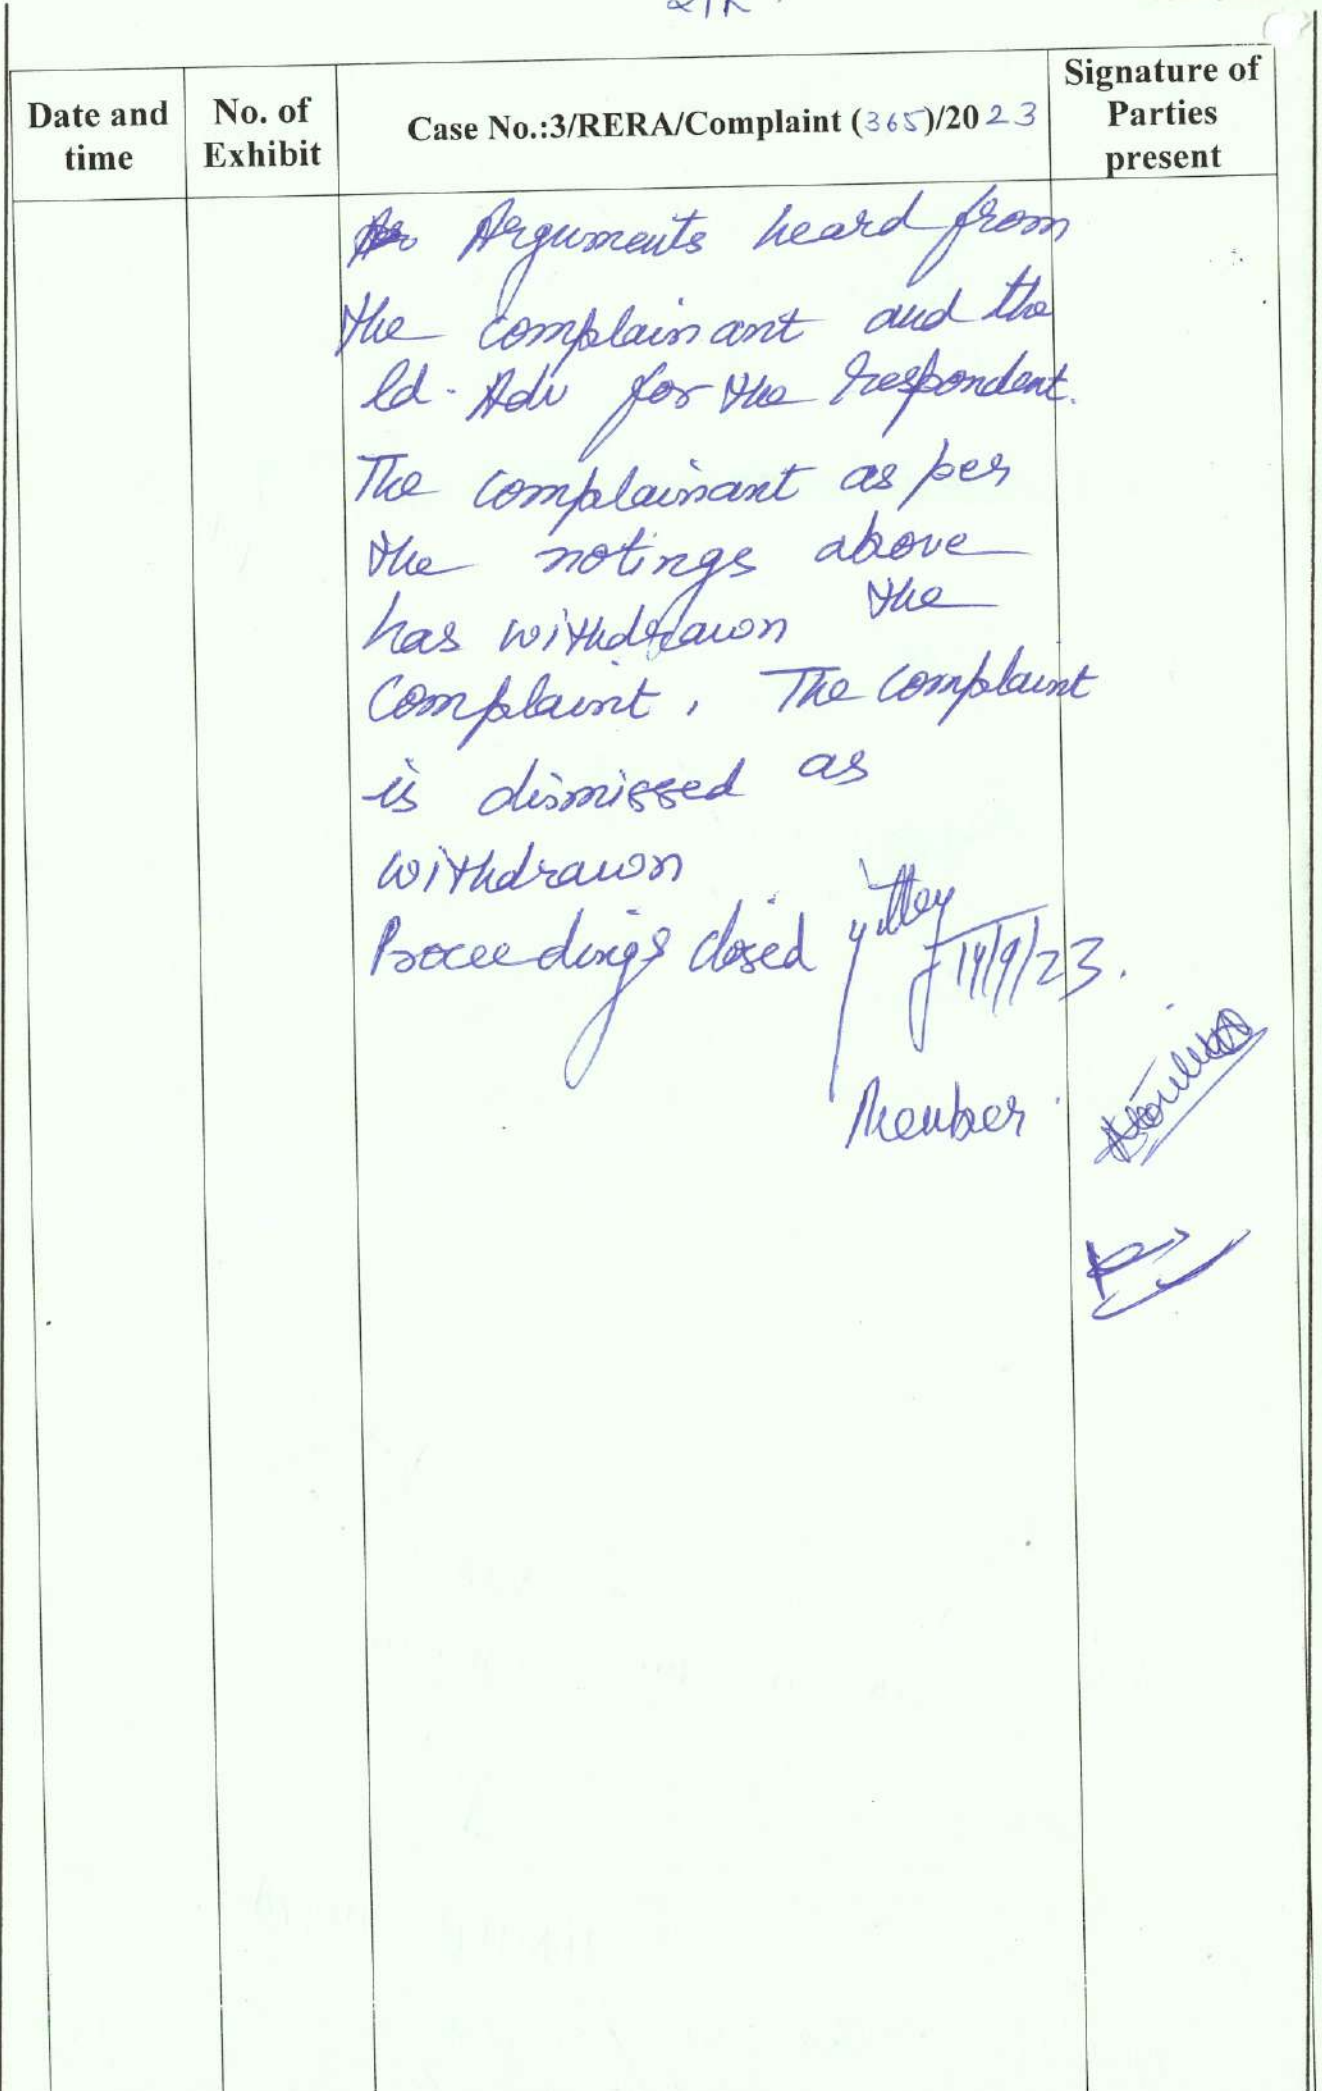 Date and time
No. of Exhibit
Case No.:3/RERA/Complaint (365)/2023
Signature of Parties present
Arguments heard from
the complainant and the
ld. Adv for the respondent.
The complainant as per
the notings above
has withdrawn the
Complaint. The complaint
is dismissed as
withdrawn
Proceedings closed
14/9/23.
Member